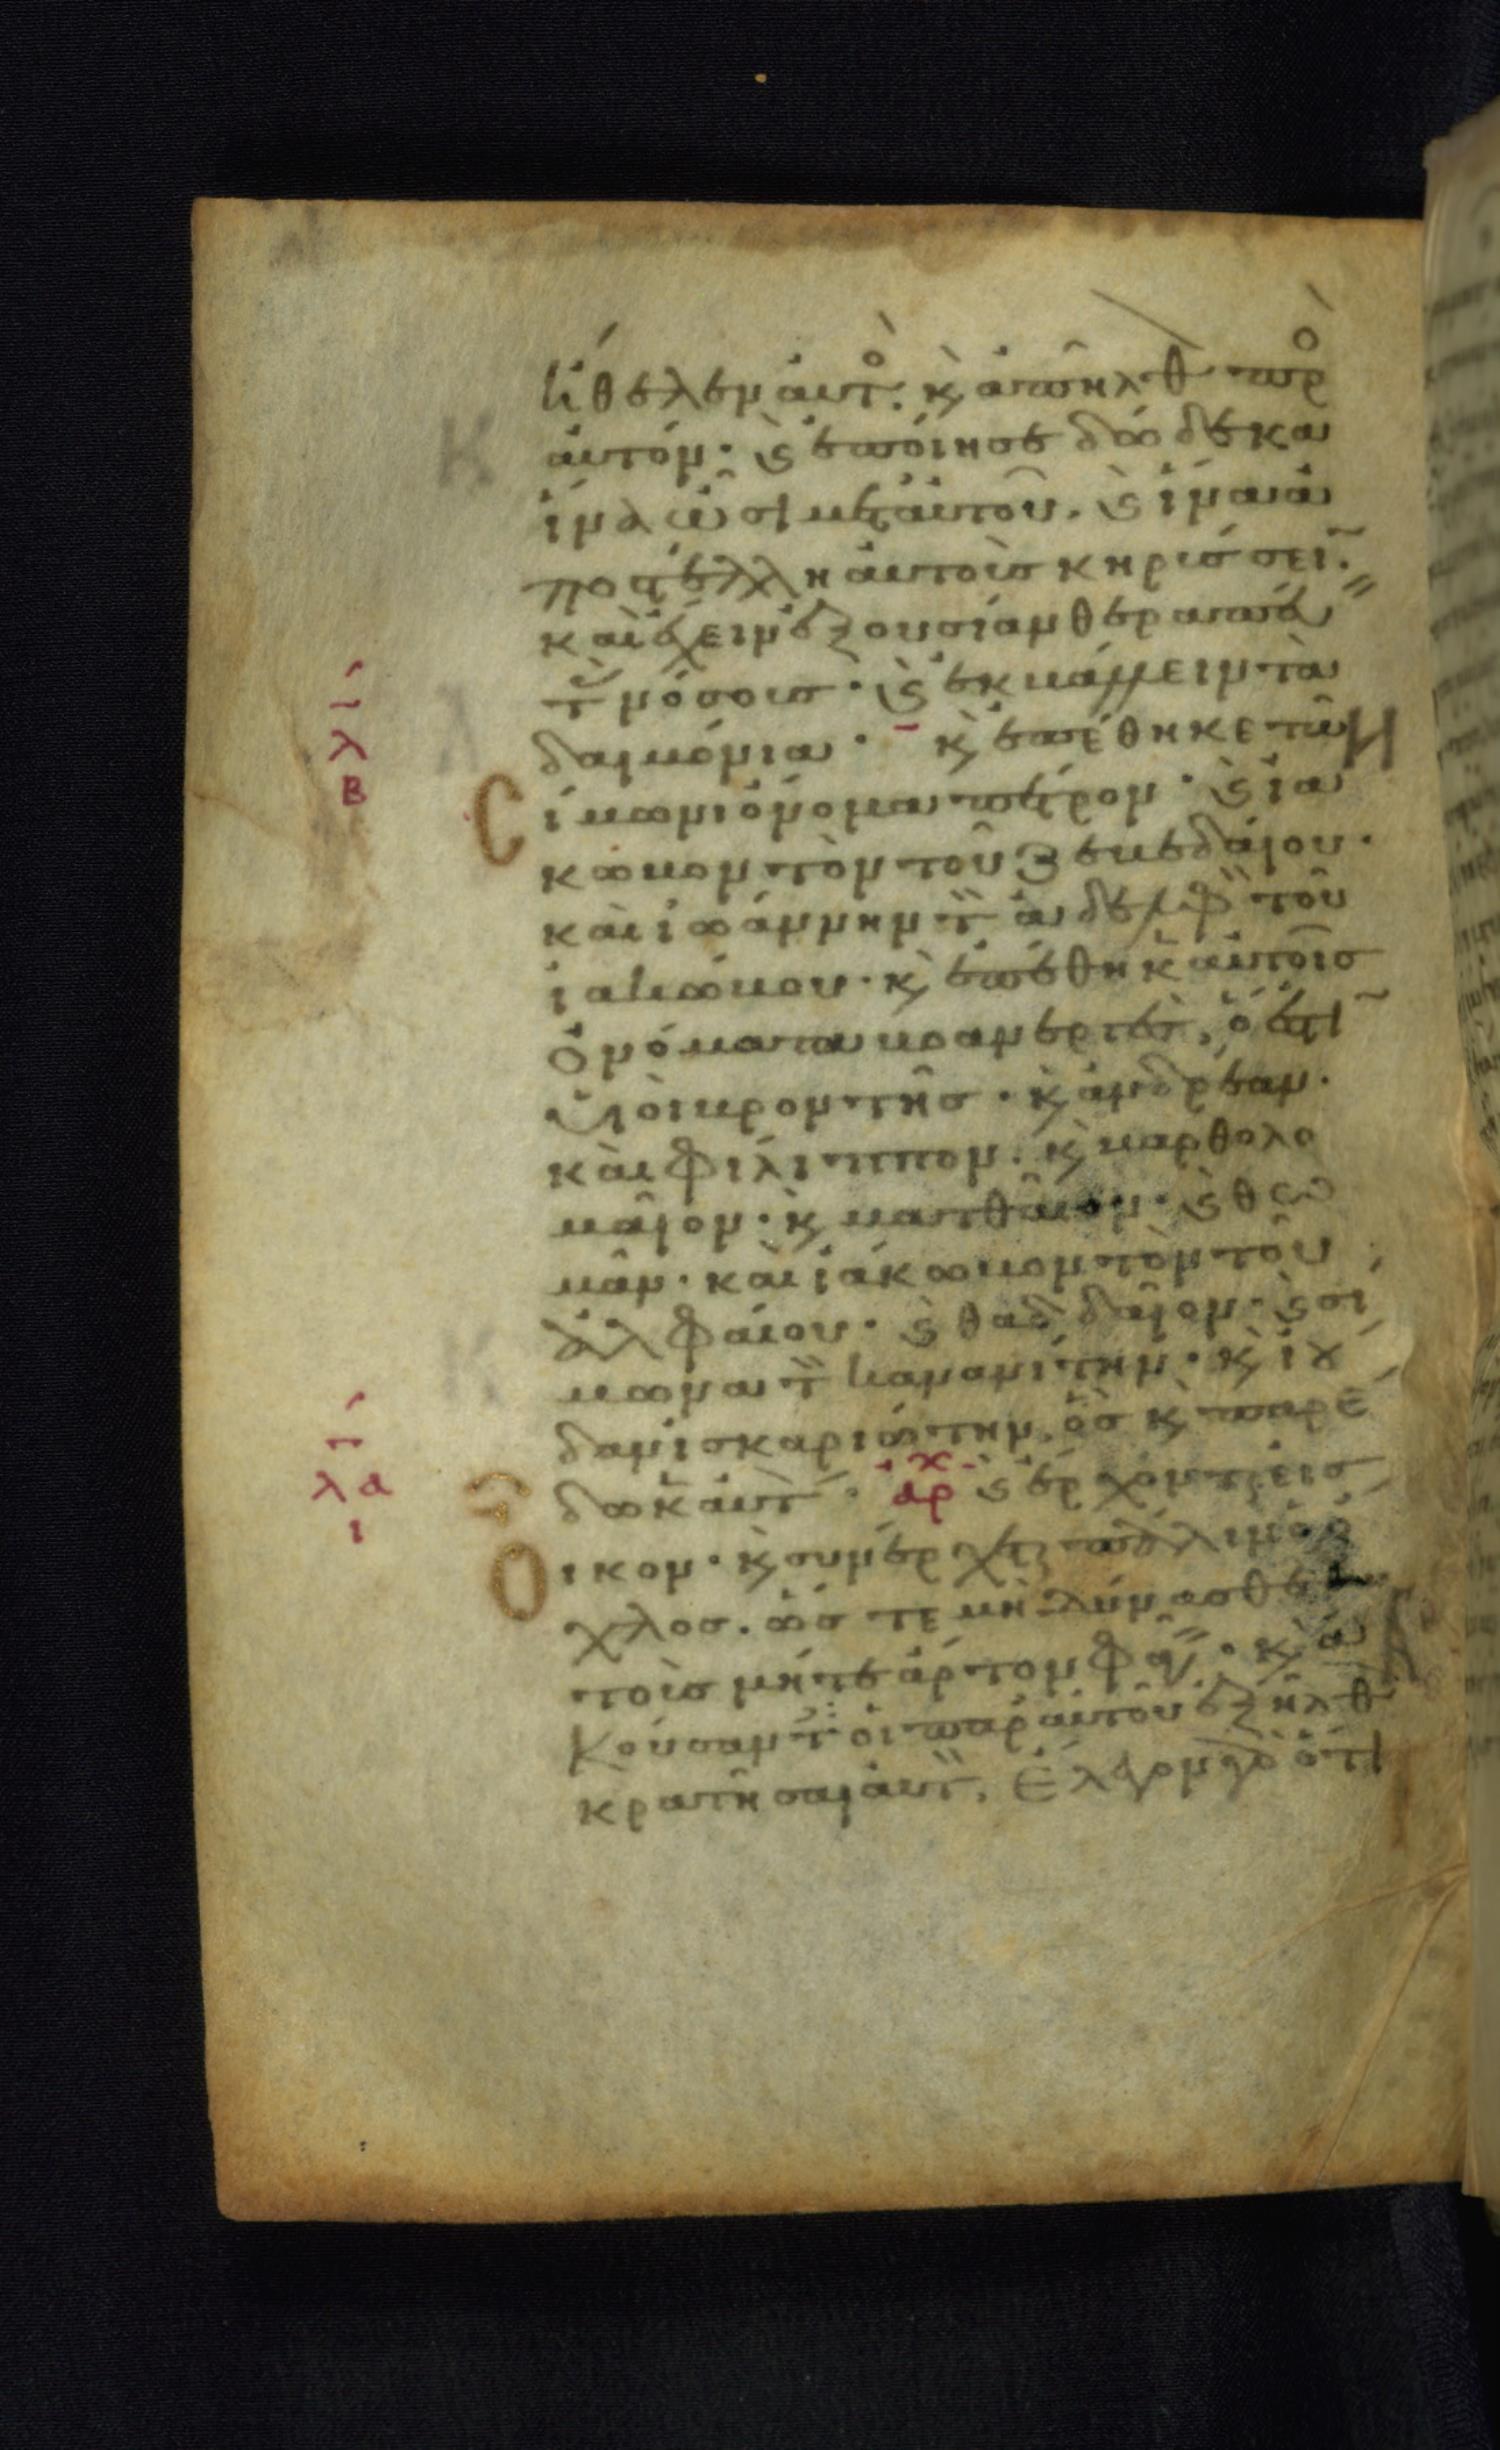 ἤθελεν αὐτο. κ ἀπῆλθ πρ
αὐτόν. κ ἐποίησε δώδεκα
ἵνα ὦσι μετ αὐτοῦ. κ ἵνα ἀ
ποστέλλη αὐτοὺς κηρύσσειν.
καὶ ἔχειν ἐξουσίαν θεραπεύ
τ νόσους. κ ἐκβάλλειν τὰ
δαιμόνια. κ ἐπέθηκε τῶ
λ
β
Cίμωνι ὄνομα πέτρον. κ ϊά
κωβον τὸν τοῦ ζεβεδαίου.
καὶ ϊωάννην τ ἀδελφ τοῦ
ϊακώβου. κ ἐπέθηκ αὐτοῖς
ὀνόματα βοανεργες, ὅ ἐστι
υἱοὶ βροντῆς. κ ἀνδρέαν.
καὶ φίλιππον. κ βαρθολο
μαῖον. κ ματθαῖον. κ θω
μᾶν. καὶ ϊάκωβον τὸν τοῦ
ἀλφαίου. κ θαδδαῖον. κ σί
μωνα τ κανανίτην. κ ϊού
δαν ἰσκαριώτην, ὃς κ παρέ
λδ
ι
δωκ αὐτ. αρχ κ ἔρχοντ εἰς
Οἶκον. κ συνέρχετ πάλιν ὁ ὄ
χλος. ὥστε μὴ δύνασθαι
τοὺς μήτε ἄρτον φαγ. κ ἀ
κούσαντ οἱ παρ αὐτοῦ ἐξῆλθ
κρατῆσαι αὐτ, ἔλεγον γὰρ ὅτι